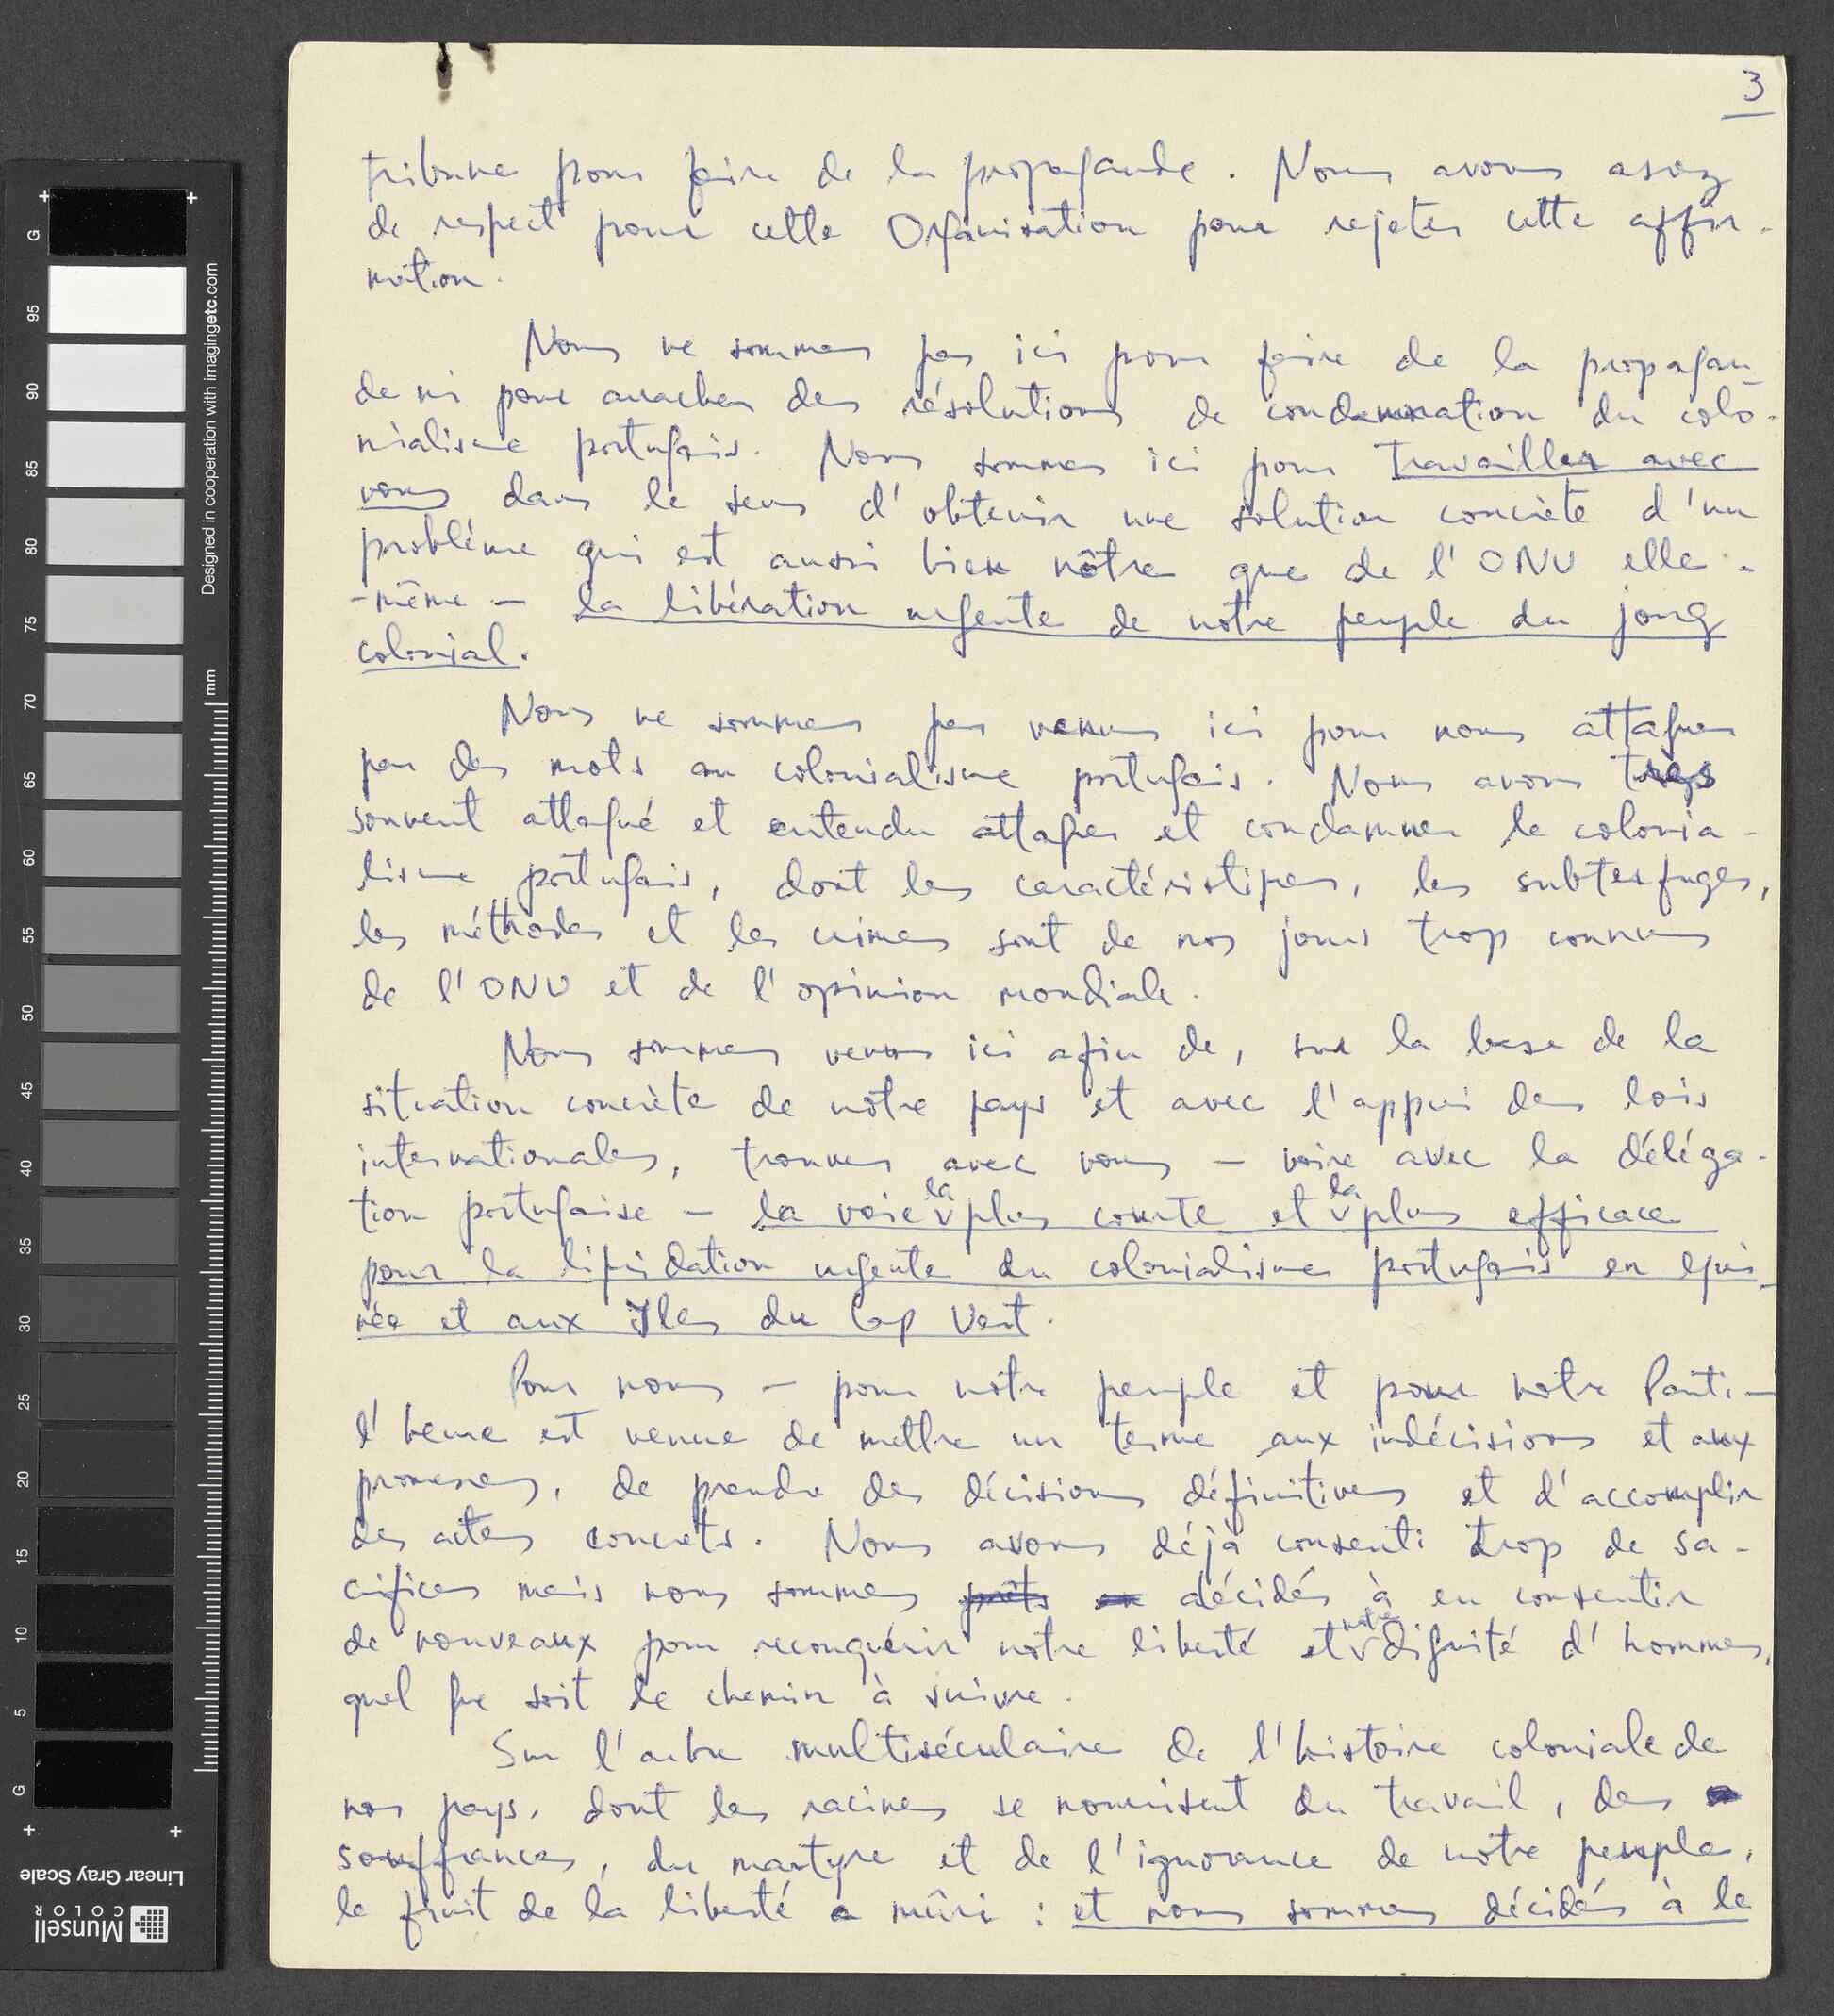 3
tribune pour faire de la propagande. Nous avons assez
de respect pour cette Organisation pour rejeter cette affir-
mation.
Nous ne sommes pas ici pour faire de la propagan-
de ni pour arracher des résolutions de condamnation du colo-
nialisme portugais. Nous sommes ici pour travailler avec
vous dans le sens d'obtenir une solution concrète d'un
problème qui est aussi bien nôtre que de l'ONU elle-
-même - la libération urgente de notre peuple du joug
colonial.
Nous ne sommes pas venus ici pour nous attaquer
par des mots au colonialisme portugais. Nous avons très
souvent attaqué et entendu attaquer et condamner le colonia-
lisme portugais, dont les caractéristiques, les subterfuges,
les méthodes et les crimes sont de nos jours trop connus
de l'ONU et de l'opinion mondiale.
Nous sommes venus ici afin de, sur la base de la
situation concrète de notre pays et avec l'appui des lois
internationales, trouver avec vous - voire avec la déléga-
tion portugaise - la voie la plus courte et la plus efficace
pour la liquidation urgente du colonialisme portugais en Gui-
née et aux Iles du Cap Vert.
Pour nous - pour notre peuple et pour notre Parti -
l'heure est venue de mettre un terme aux indécisions et aux
promesses, de prendre des décisions définitives et d'accomplir
des actes concrets. Nous avons déjà consenti trop de sa-
crifices mais nous sommes prêts en décidés à en consentir
de nouveaux pour reconquérir notre liberté et notre dignité d'hommes,
quel que soit le chemin à suivre.
Sur l'arbre multiséculaire de l'histoire coloniale de
nos pays, dont les racines se nourrisent du travail, des
souffrances, du martyre et de l'ignorance de notre peuple,
le fruit de la liberté a mûri : et nous sommes décidés à le
G 95 90 85 80 75 70 65 60 55 50 45 40 35 30 25 20 15 10 5 G
mm
Designed in cooperation with imagingetc.com
Linear Gray Scale
Munsell
COLOR